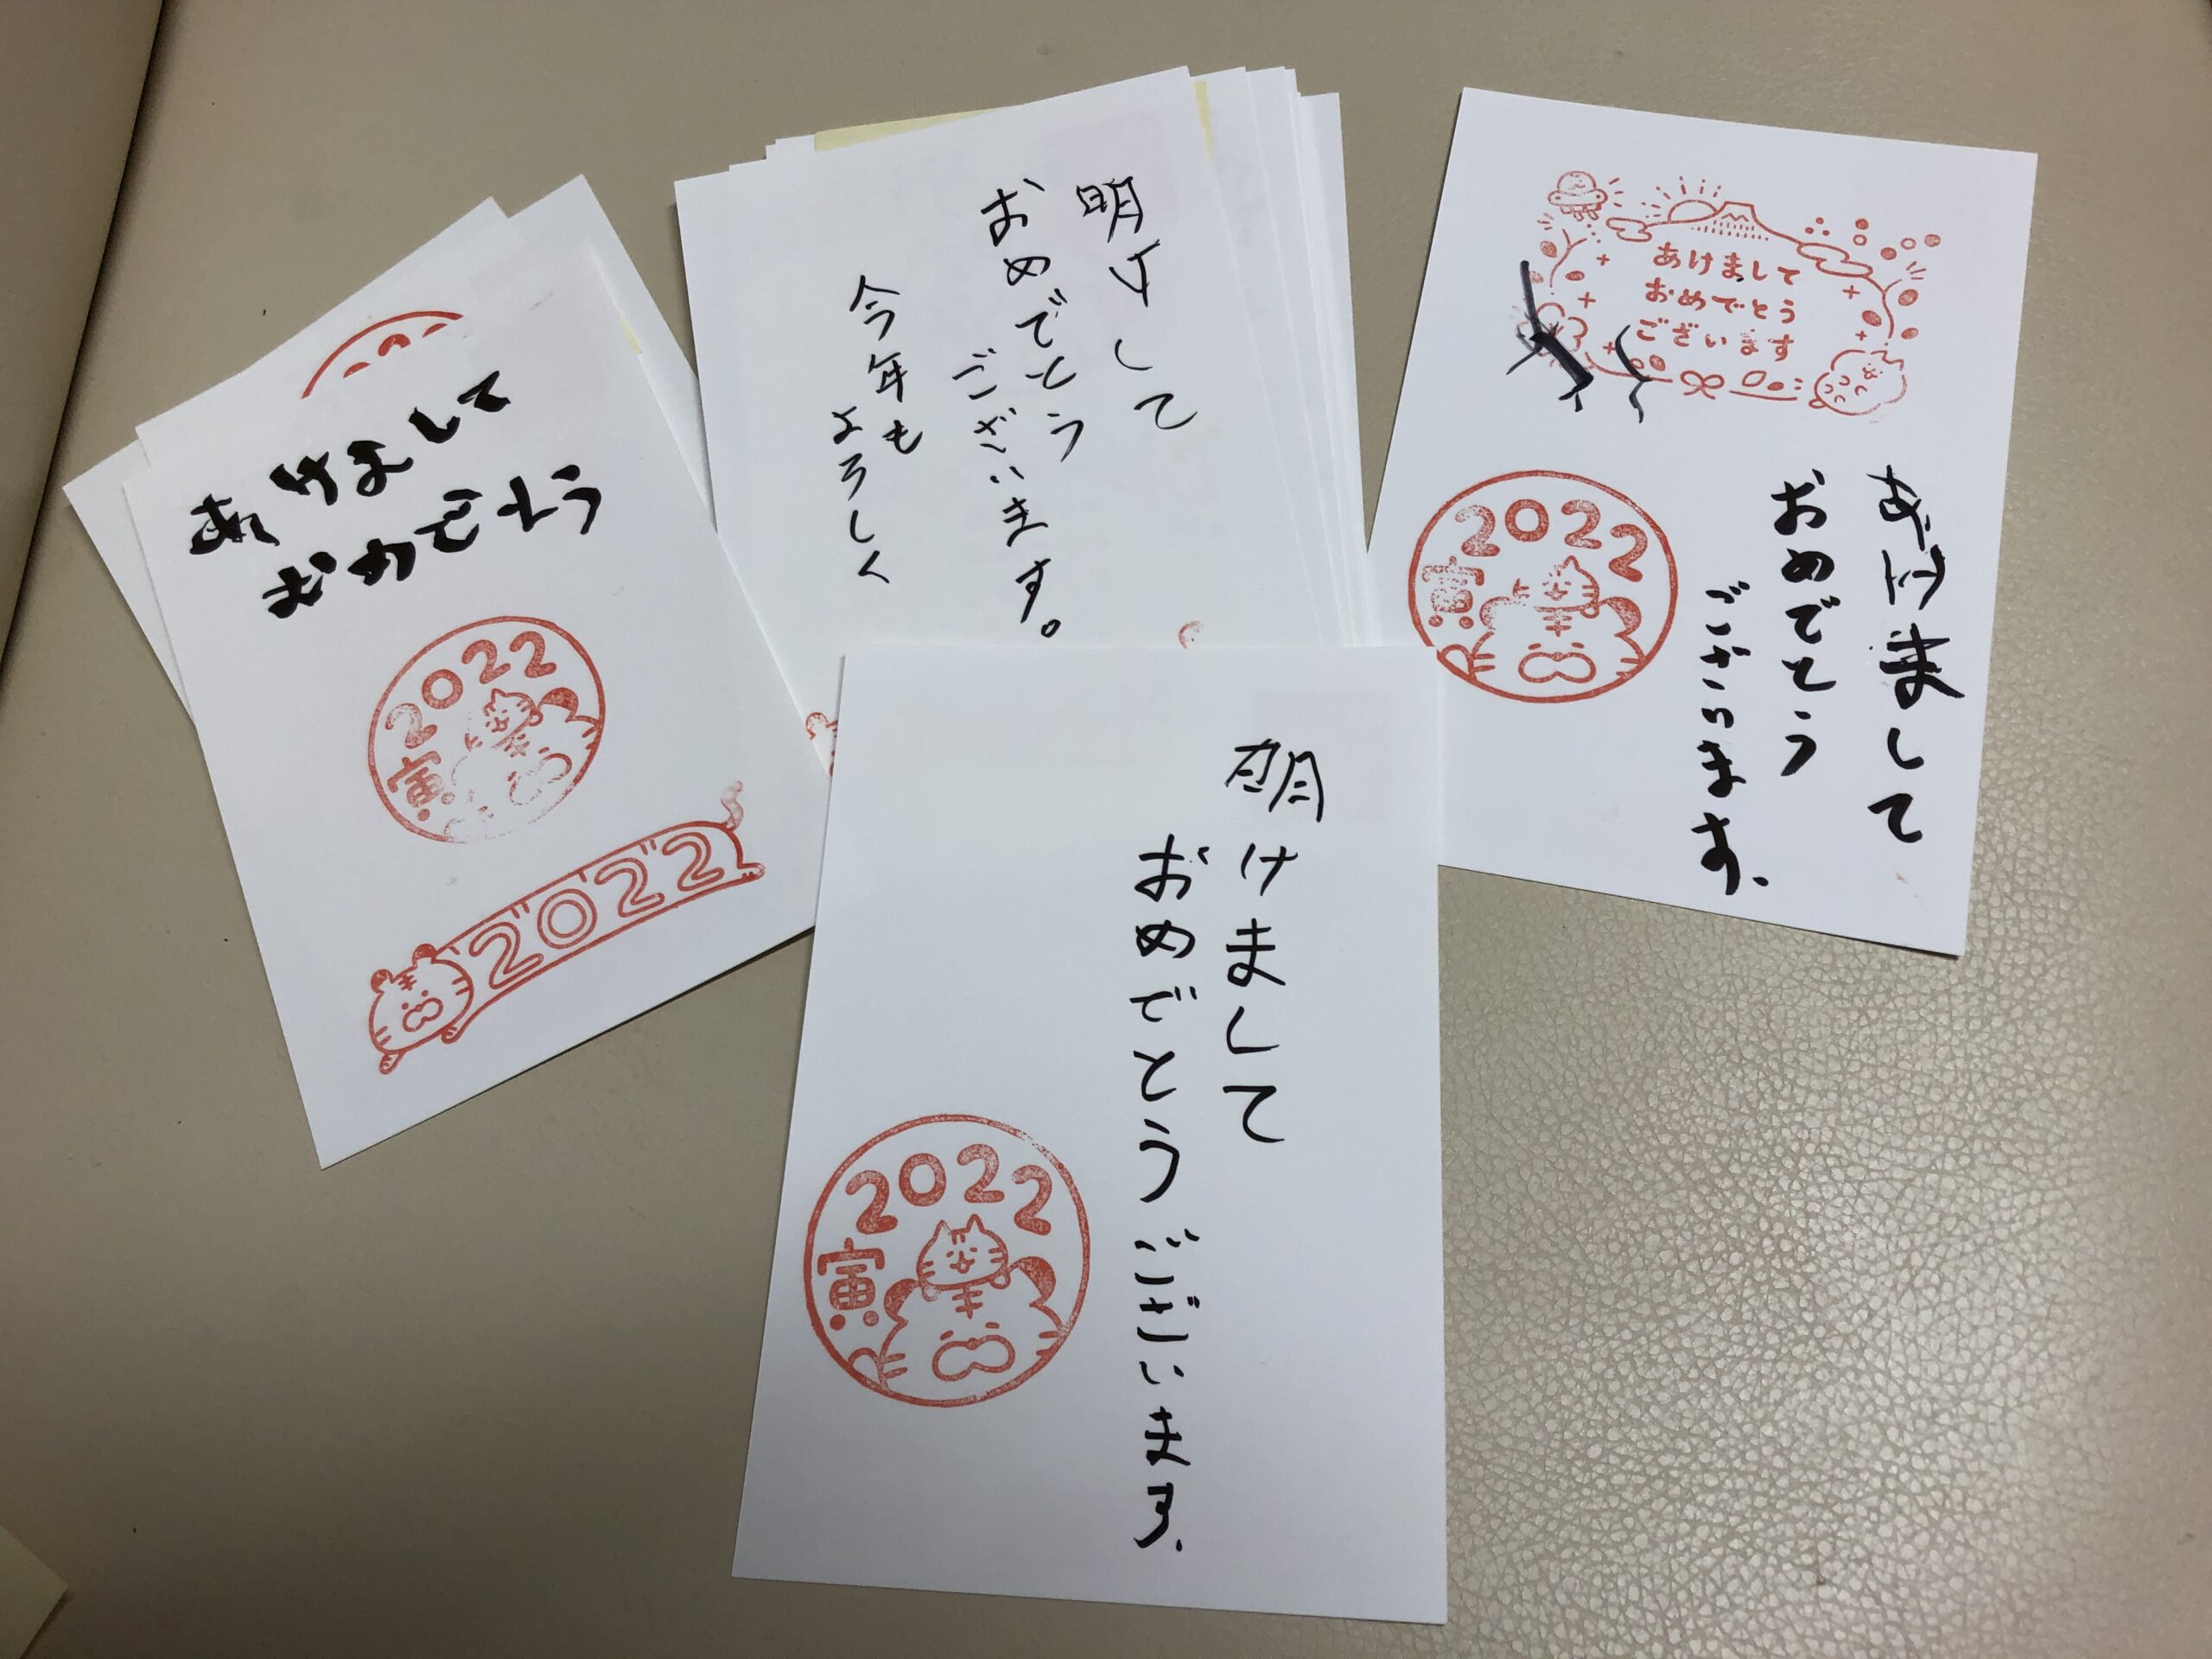 あけまして
おめでとう
2022
寅
2022
明けまして
おめでとう
ございます。
今年も
よろしく
あけまして
おめでとう
ございます
あけまして
おめでとう
ございます.
2022
寅
明けまして
おめでとうございます.
2022
寅